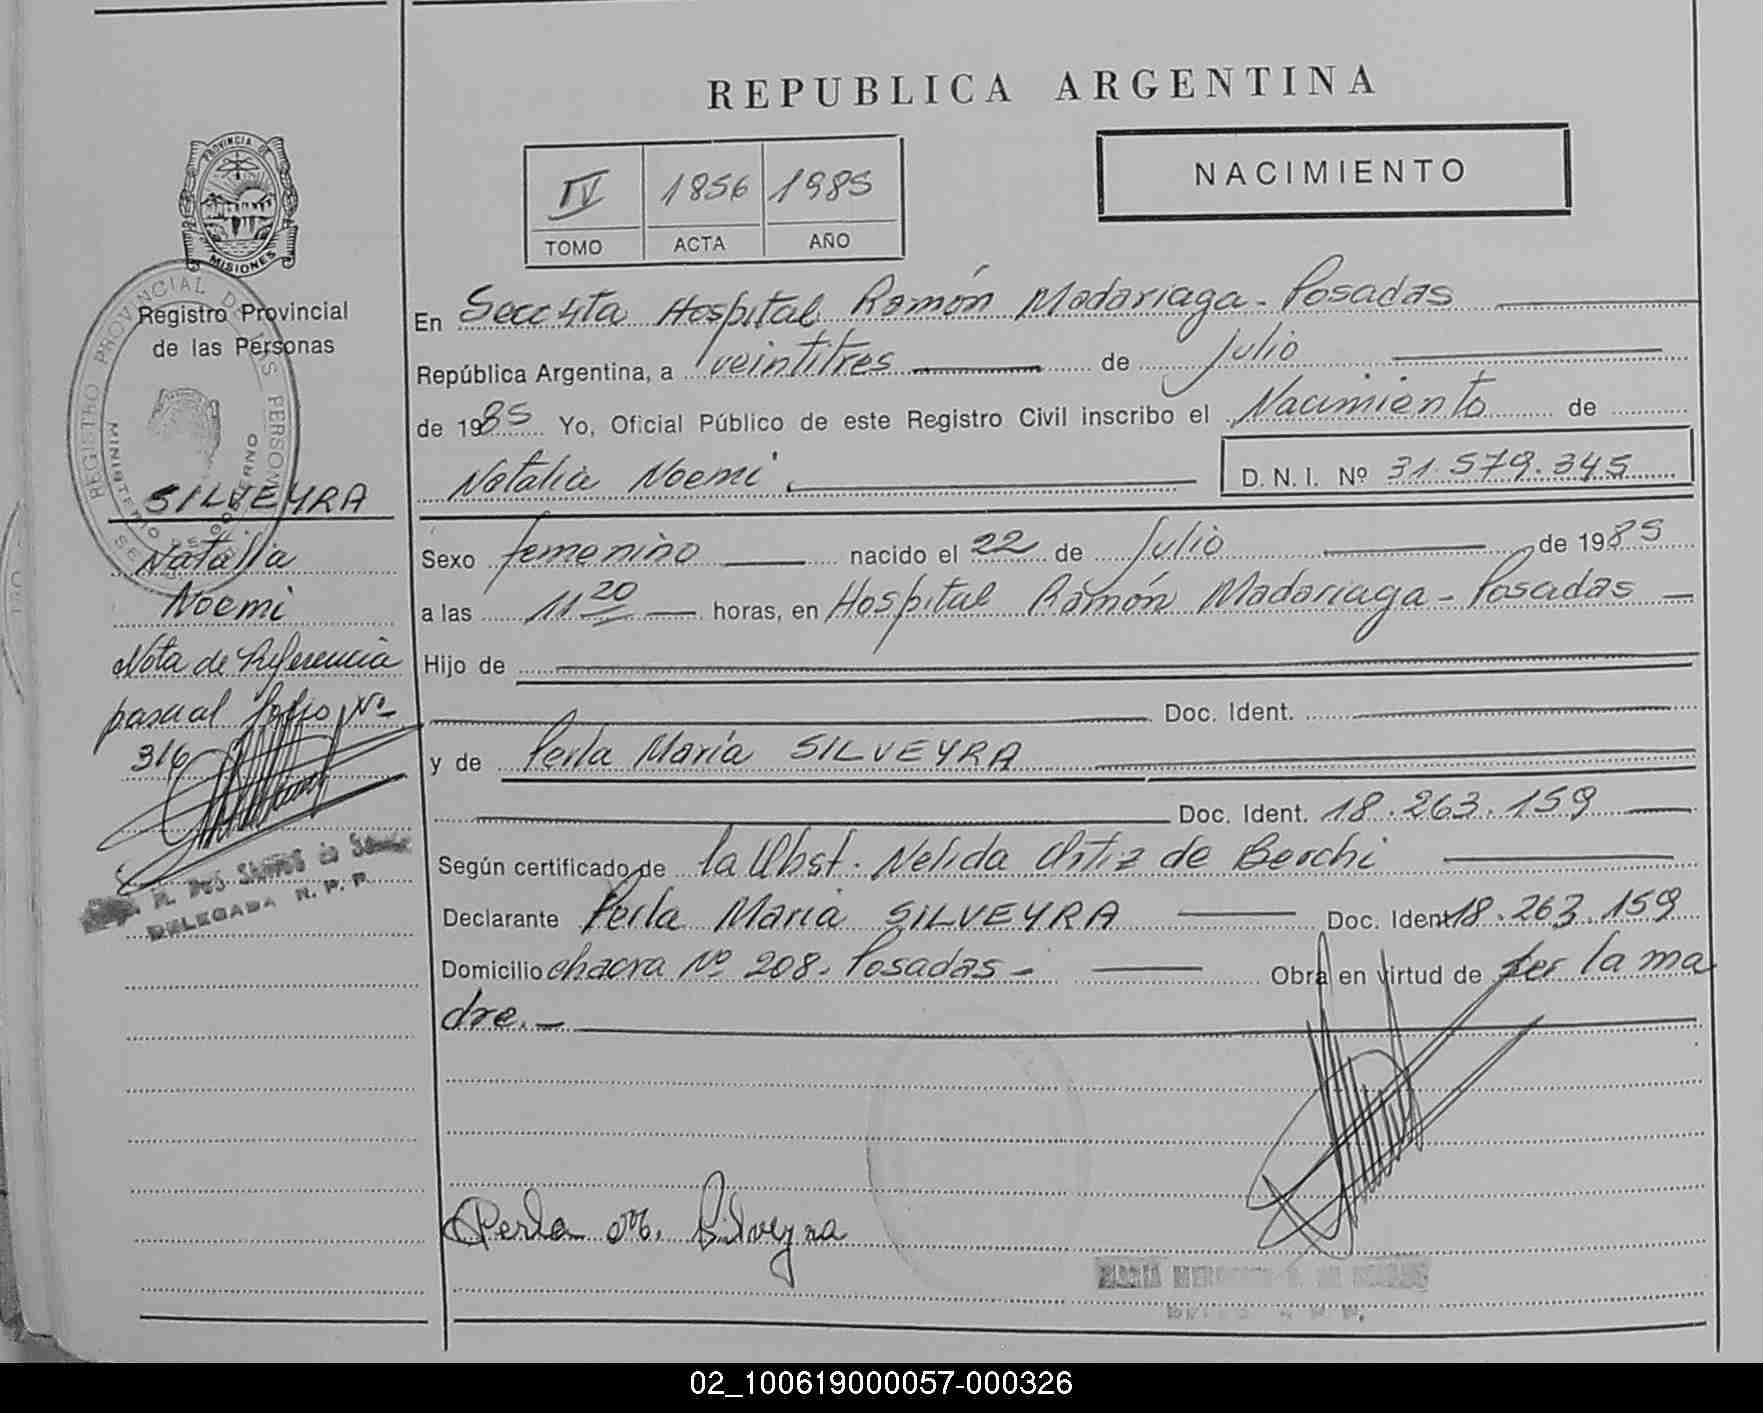 REPUBLICA ARGENTINA
NACIMIENTO
IV 1856 1985
TOMO ACTA AÑO
PROVINCIA DE
MISIONES
Registro Provincial
de las Personas
REGISTRO PROVINCIAL DE LAS PERSONAS
MINISTERIO DE GOBIERNO
SILVEYRA
Natalia
Noemi
Nota de Referencia
pasual folio Nº
316
DELEGADA R. P. P.
En Secc 4ta Hospital Ramón Madariaga - Posadas
República Argentina, a veintitres de Julio
de 1985 Yo, Oficial Público de este Registro Civil inscribo el Nacimiento de
Natalia Noemi D. N. I. Nº 31.579.345
Sexo femenino nacido el 22 de Julio de 1985
a las 11 20 horas, en Hospital Ramón Madariaga - Posadas
Hijo de
Doc. Ident.
y de Perla Maria SILVEYRA
Doc. Ident. 18.263.159
Según certificado de la Obst. Nelida Ortiz de Berchi
Declarante Perla Maria SILVEYRA Doc. Ident 18.263.159
Domicilio chacra Nº 208. Posadas - Obra en virtud de ser la ma
dre.-
Perla M. Silveyra
02_100619000057-000326